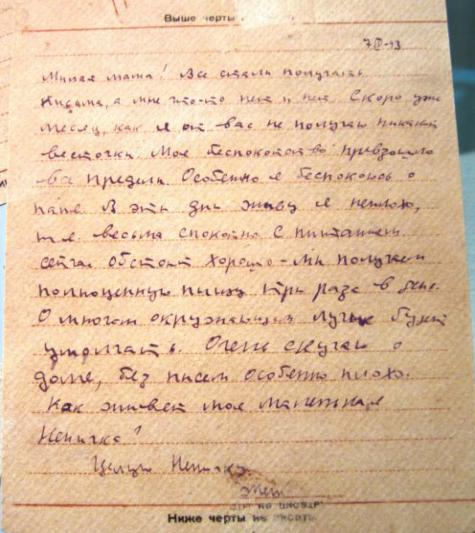 Выше черты
7/III-43
Милая мама! Все стали получать
письма, а мне что-то нет и нет. Скоро уже
месяц, как я от вас не получаю никакой
весточки. Мое беспокойство превзошло
все пределы. Особенно я беспокоюсь о
папе. В эти дни живу я неплохо,
т.е. весьма спокойно. С питанием
сейчас обстоит хорошо - мы получаем
полноценную пищу три раза в день.
О многом окружающем лучше будет
умолчать. Очень скучаю о
доме, без писем особенно плохо.
Как живет моя маленькая
Ниночка?
Целую Ниночку.
Ниже черты не писать